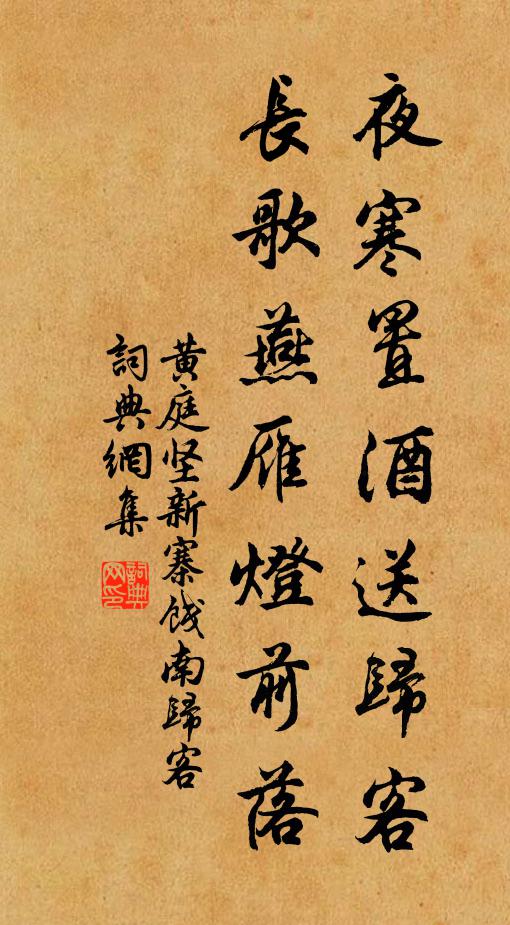 夜寒置酒送歸客
長歌燕雁燈前落
黄庭坚新寨餞南歸客
詞典網集
詞典網印